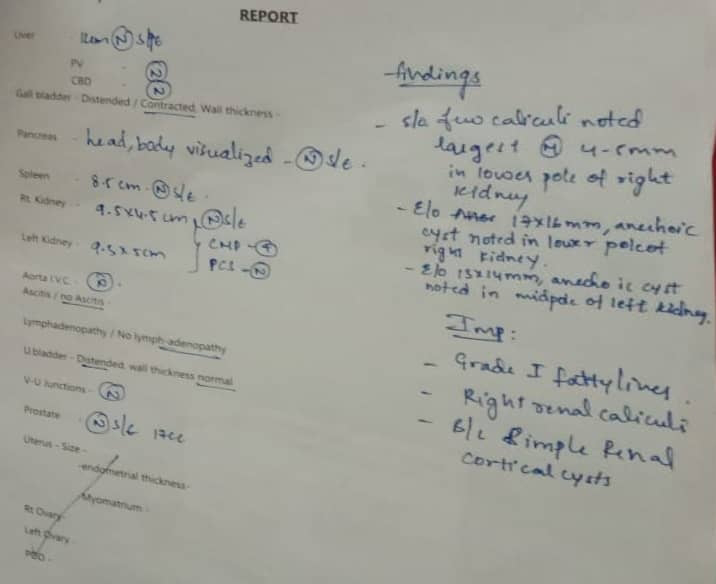 REPORT
Liver 12cm (N) s/e
PV - (N)
CBD - (N)
Gall bladder - Distended / Contracted, Wall thickness -
Pancreas - head, body visualized - (N) s/e.
Spleen 8.5 cm - (N) s/e.
Rt. Kidney - 9.5x4.5 cm (N) s/e
Left Kidney - 9.5x5cm CMD - (+)
PCS - (N)
Aorta I.V.C. (N).
Ascitis / no Ascitis
Lymphadenopathy / No lymph-adenopathy
U.bladder - Distended, wall thickness normal
V-U Junctions - (N)
Prostate (N) s/e 17cc
Uterus - Size -
-endometrial thickness-
Myomatrium -
Rt Ovary-
Left Ovary -
POD -
- findings
- s/o few caliculi noted
largest 4-5mm
in lower pole of right
kidney
- E/o 17x16mm, anechoic
cyst noted in lower pole of
right kidney.
- E/o 15x14mm, anechoic cyst
noted in midpole of left kidney.
Imp:
- Grade I fatty liver.
- Right renal caliculi
- B/L Simple Renal
cortical cysts